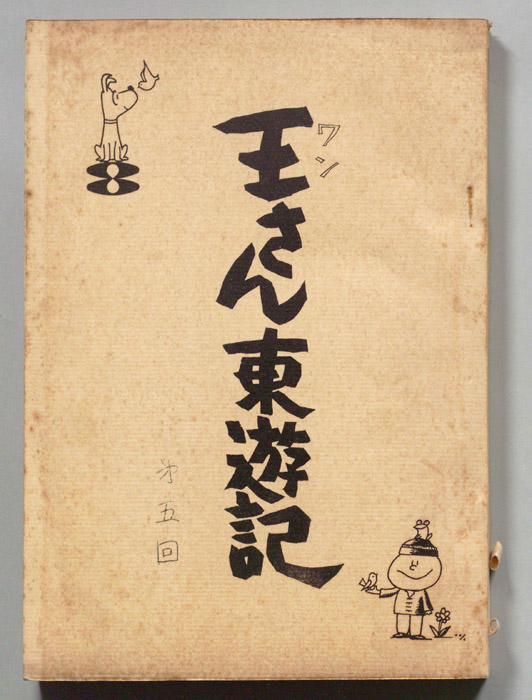 王さん東遊記
ワン
第五回